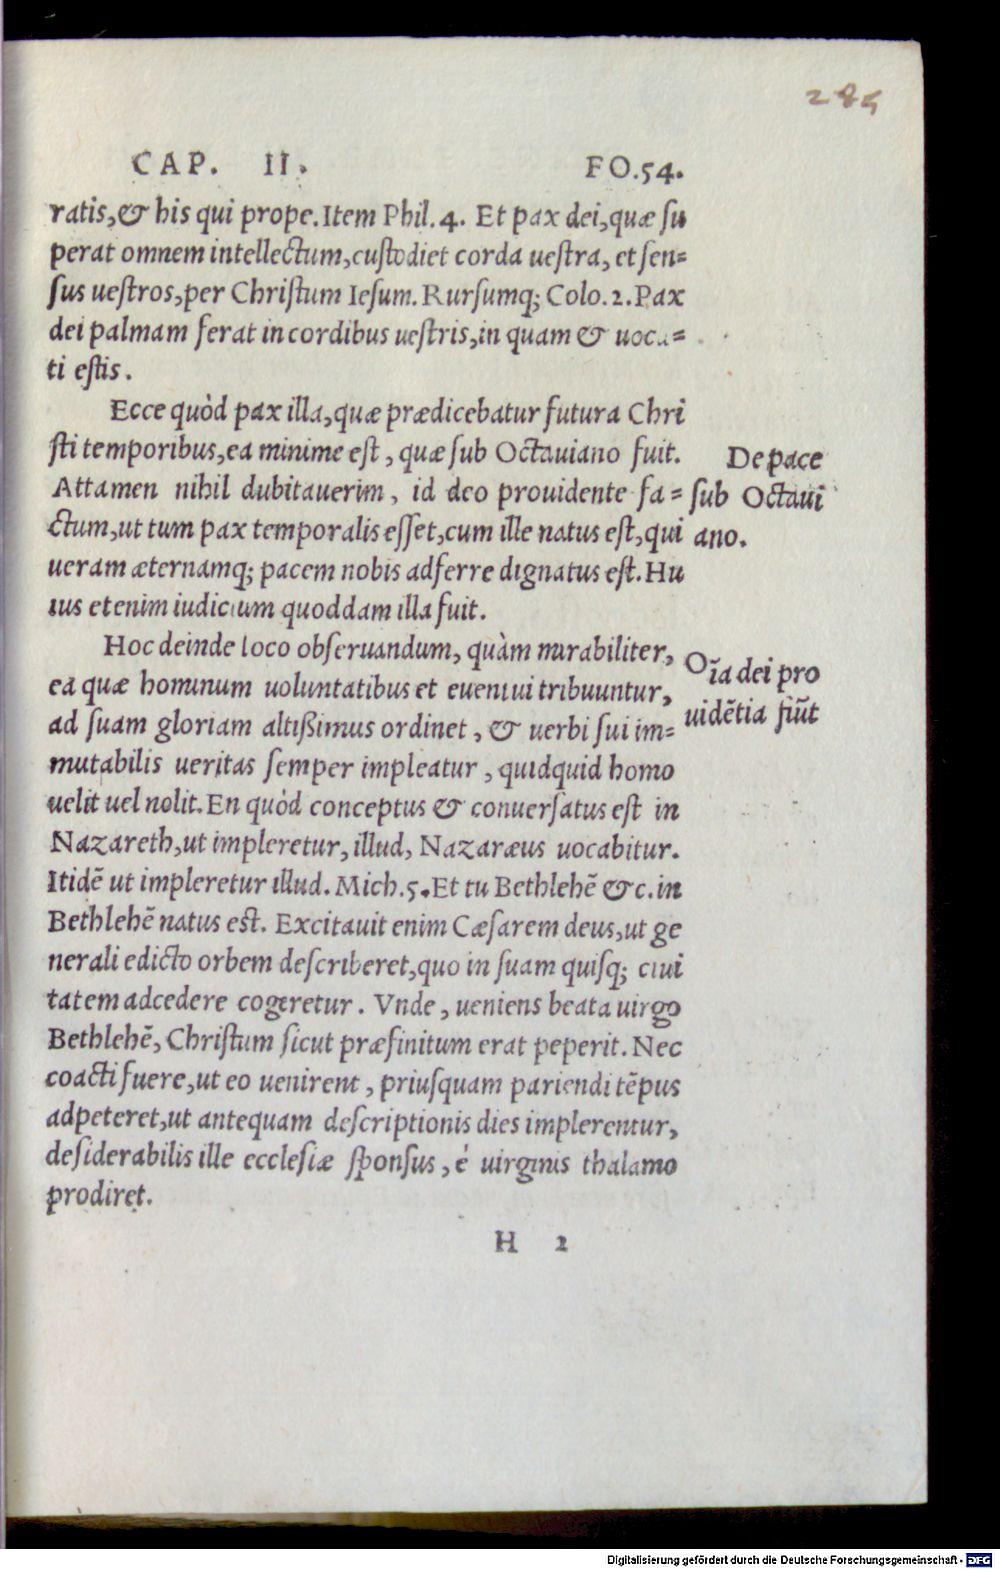 285
CAP. II. FO.54.
ratis,& his qui prope.Item Phil.4. Et pax dei,quæ ſu
perat omnem intellectum,cuſtodiet corda ueſtra, et ſen=
ſus ueſtros,per Chriſtum Ieſum. Rurſumq; Colo.2.Pax
dei palmam ferat in cordibus ueſtris,in quam & uoca=
ti eſtis.
Ecce quòd pax illa,quæ prædicebatur futura Chri
ſti temporibus,ea minime eſt, quæ ſub Octauiano fuit.
Attamen nihil dubitauerim, id deo prouidente fa=
ctum,ut tum pax temporalis eſſet,cum ille natus eſt,qui
ueram æternamq; pacem nobis adferre dignatus eſt.Hu
ius etenim iudicium quoddam illa fuit.
De pace
ſub Octaui
ano.
Hoc deinde loco obſeruandum, quàm mirabiliter,
ea quæ hominum uoluntatibus et euentui tribuuntur,
ad ſuam gloriam altißimus ordinet, & uerbi ſui im=
mutabilis ueritas ſemper impleatur, quidquid homo
uelit uel nolit.En quòd conceptus & conuerſatus eſt in
Nazareth,ut impleretur, illud, Nazaræus uocabitur.
Itidē ut impleretur illud. Mich.5.Et tu Bethlehē &c.in
Bethlehē natus est. Excitauit enim Cæſarem deus,ut ge
nerali edicto orbem deſcriberet,quo in ſuam quiſq; ciui
tatem adcedere cogeretur. Vnde, ueniens beata uirgo
Bethlehē, Chriſtum ſicut præfinitum erat peperit. Nec
coacti fuere,ut eo uenirent, priuſquam pariendi tēpus
adpeteret,ut antequam deſcriptionis dies implerentur,
deſiderabilis ille eccleſiæ ſponſus, é uirginis thalamo
prodiret.
Oīa dei pro
uidētia fiūt
H 2
Digitalisierung gefördert durch die Deutsche Forschungsgemeinschaft - DFG